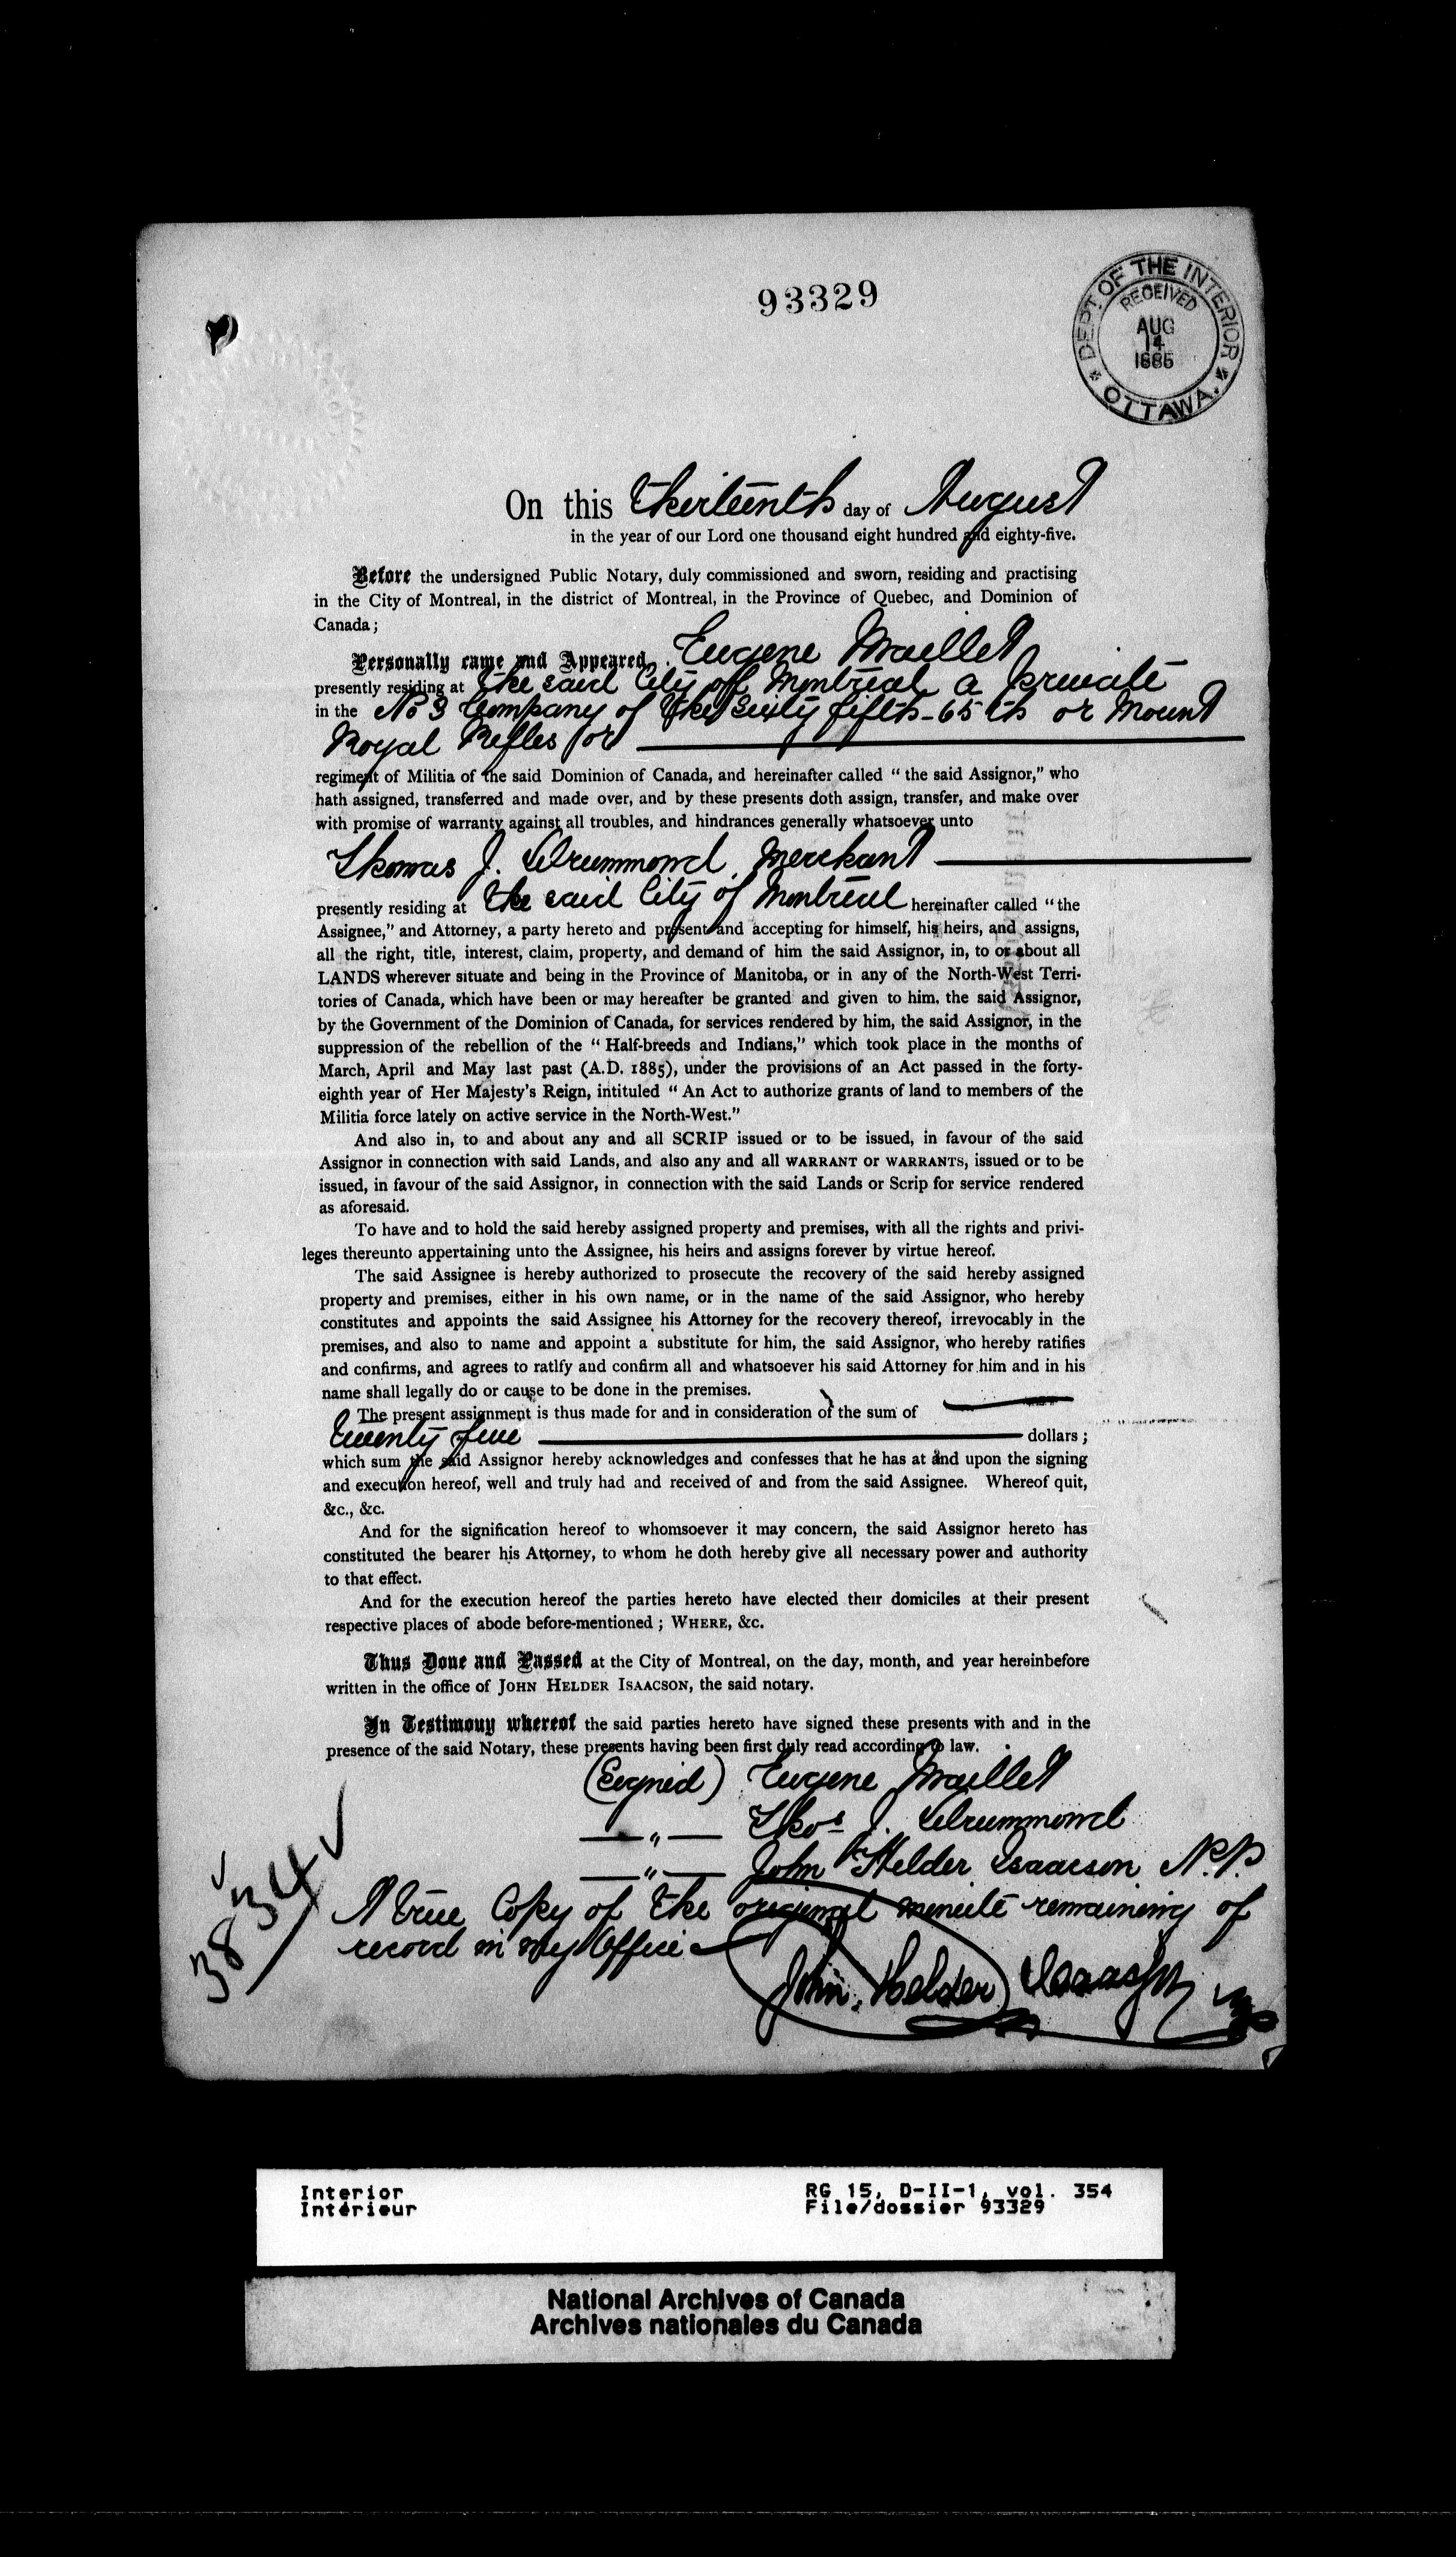 93329
DEPT OF THE INTERIOR
RECEIVED
AUG
14
1885
OTTAWA.
On this thirteenth day of August
in the year of our Lord one thousand eight hundred and eighty-five.
Before the undersigned Public Notary, duly commissioned and sworn, residing and practising
in the City of Montreal, in the district of Montreal, in the Province of Quebec, and Dominion of
Canada;
Personally came and Appeared. Eugene Maillet
presently residing at the said City of Montreal a private
in the No 3 Company of the Sixty fifth - 65th or Mount
Royal Rifles or
regiment of Militia of the said Dominion of Canada, and hereinafter called "the said Assignor," who
hath assigned, transferred and made over, and by these presents doth assign, transfer, and make over
with promise of warranty against all troubles, and hindrances generally whatsoever unto
Thomas J. Drummond, Merchant
presently residing at the said City of Montreal hereinafter called "the
Assignee," and Attorney, a party hereto and present and accepting for himself, his heirs, and assigns,
all the right, title, interest, claim, property, and demand of him the said Assignor, in, to or about all
LANDS wherever situate and being in the Province of Manitoba, or in any of the North-West Terri-
tories of Canada, which have been or may hereafter be granted and given to him, the said Assignor,
by the Government of the Dominion of Canada, for services rendered by him, the said Assignor, in the
suppression of the rebellion of the "Half-breeds and Indians," which took place in the months of
March, April and May last past (A.D. 1885), under the provisions of an Act passed in the forty-
eighth year of Her Majesty's Reign, intituled "An Act to authorize grants of land to members of the
Militia force lately on active service in the North-West."
And also in, to and about any and all SCRIP issued or to be issued, in favour of the said
Assignor in connection with said Lands, and also any and all WARRANT or WARRANTS, issued or to be
issued, in favour of the said Assignor, in connection with the said Lands or Scrip for service rendered
as aforesaid.
To have and to hold the said hereby assigned property and premises, with all the rights and privi-
leges thereunto appertaining unto the Assignee, his heirs and assigns forever by virtue hereof.
The said Assignee is hereby authorized to prosecute the recovery of the said hereby assigned
property and premises, either in his own name, or in the name of the said Assignor, who hereby
constitutes and appoints the said Assignee his Attorney for the recovery thereof, irrevocably in the
premises, and also to name and appoint a substitute for him, the said Assignor, who hereby ratifies
and confirms, and agrees to ratify and confirm all and whatsoever his said Attorney for him and in his
name shall legally do or cause to be done in the premises.
The present assignment is thus made for and in consideration of the sum of
twenty five dollars;
which sum the said Assignor hereby acknowledges and confesses that he has at and upon the signing
and execution hereof, well and truly had and received of and from the said Assignee. Whereof quit,
&c., &c.
And for the signification hereof to whomsoever it may concern, the said Assignor hereto has
constituted the bearer his Attorney, to whom he doth hereby give all necessary power and authority
to that effect.
And for the execution hereof the parties hereto have elected their domiciles at their present
respective places of abode before-mentioned; WHERE, &c.
Thus Done and Passed at the City of Montreal, on the day, month, and year hereinbefore
written in the office of JOHN HELDER ISAACSON, the said notary.
In Testimony whereof the said parties hereto have signed these presents with and in the
presence of the said Notary, these presents having been first duly read according to law.
(Signed) Eugene Maillet
— " — Thos J. Drummond
— " — John Helder Isaacson N.P.
A true Copy of the original minute remaining of
record in my Office
John Helder Isaacson NP
3834
Interior
Intérieur
RG 15, D-II-1, vol. 354
File/dossier 93329
National Archives of Canada
Archives nationales du Canada